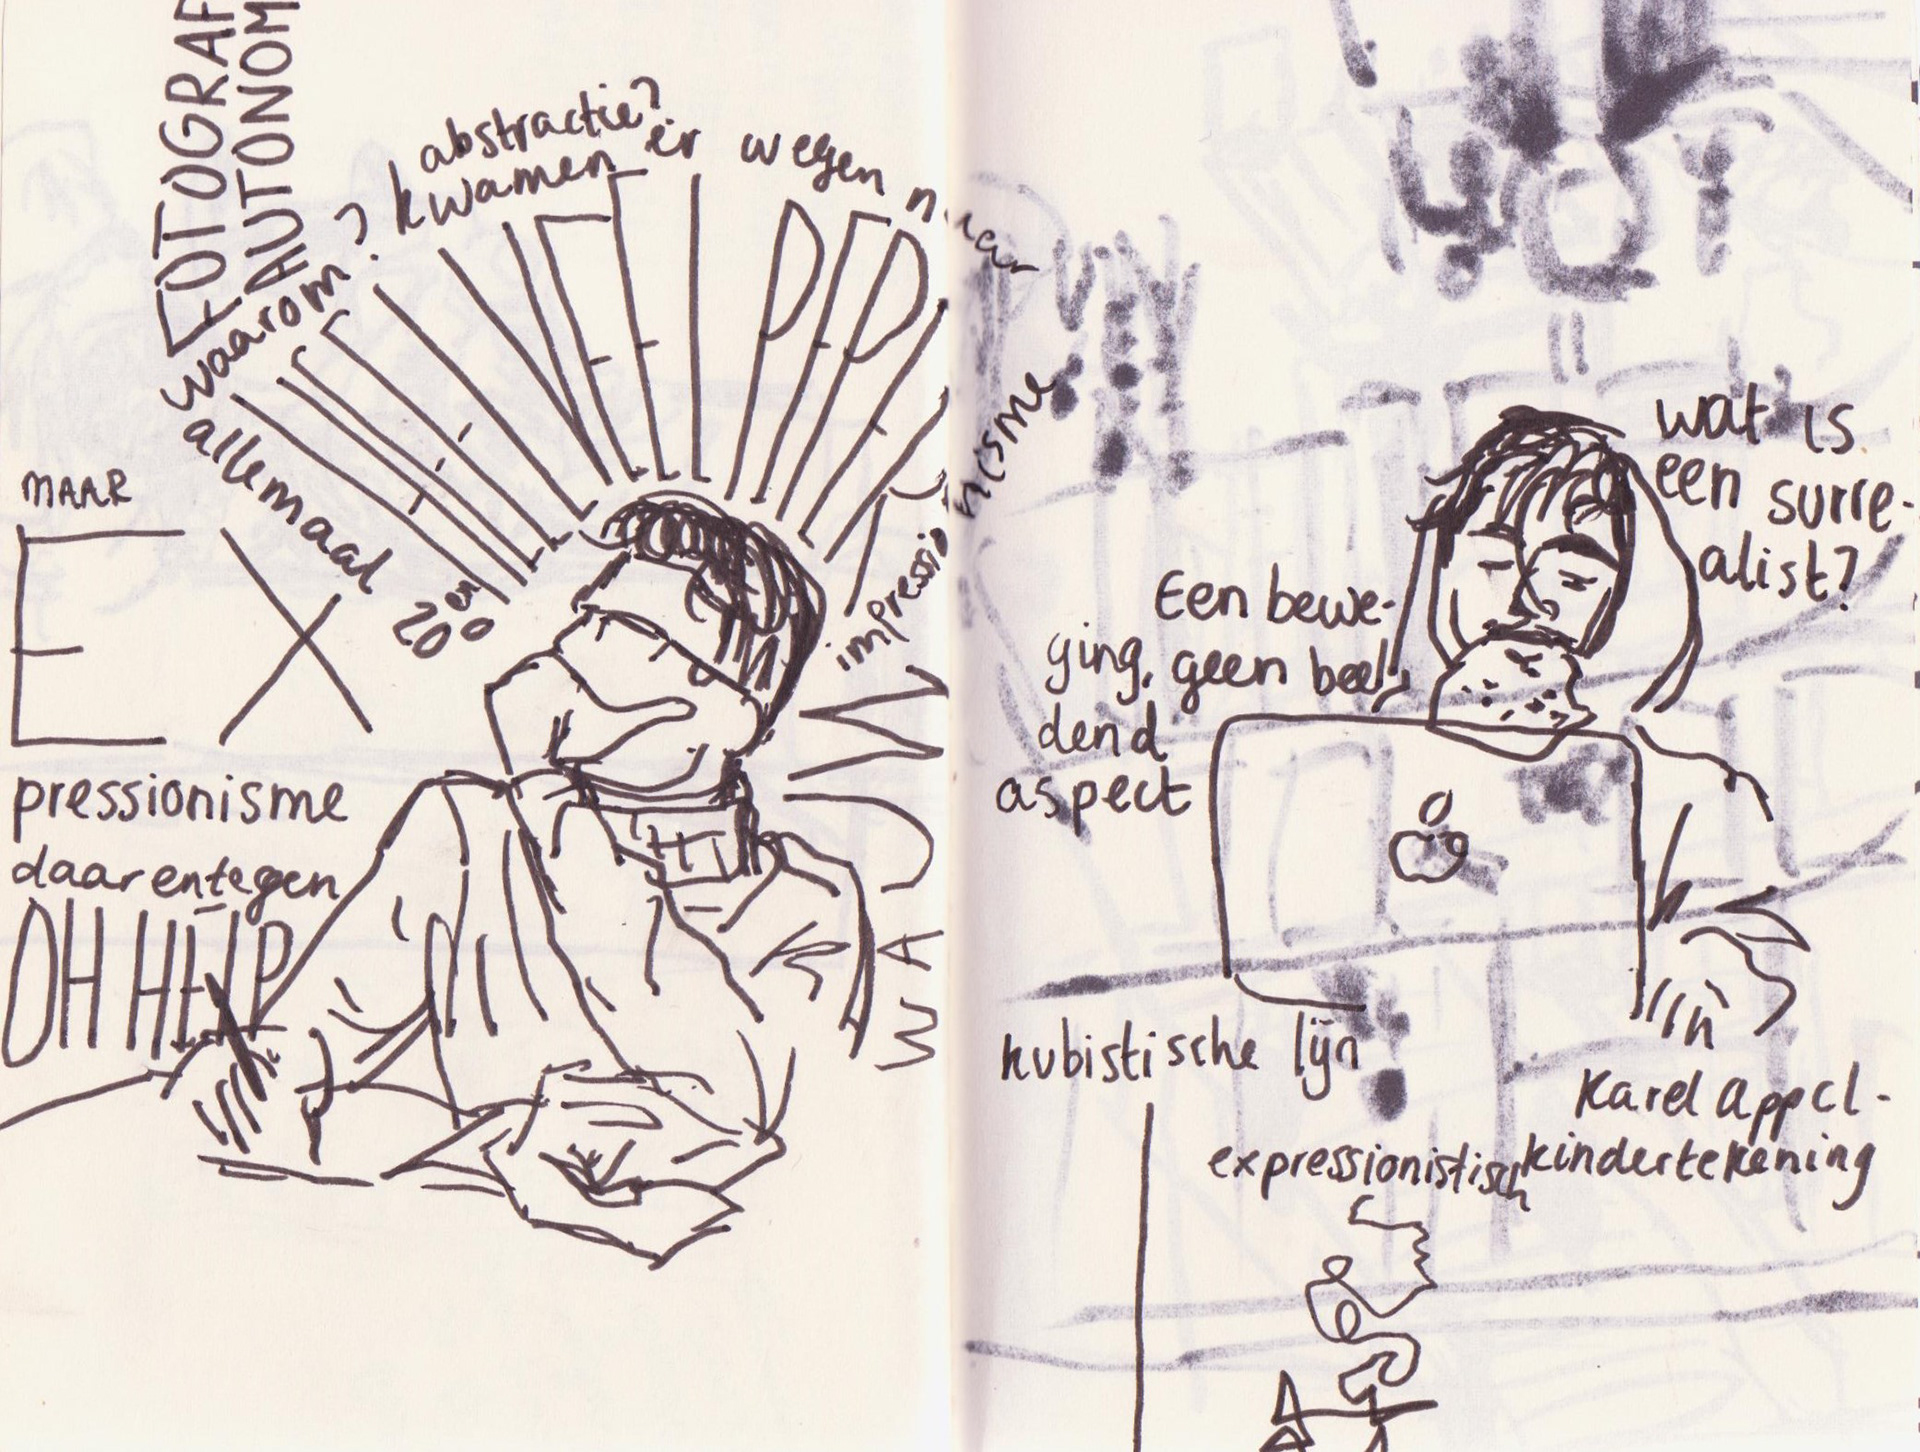 FOTOGRAF
AUTONOM
waarom?
abstractie?
kwamen er wegen naar
allemaal
impressionisme
MAAR
EX
pressionisme
daarentegen
OH HELP
WA
wat is
een surre-
alist?
Een bewe-
ging, geen beel-
dend
aspect
kubistische lijn
Karel Appel-
kindertekening
expressionistisch